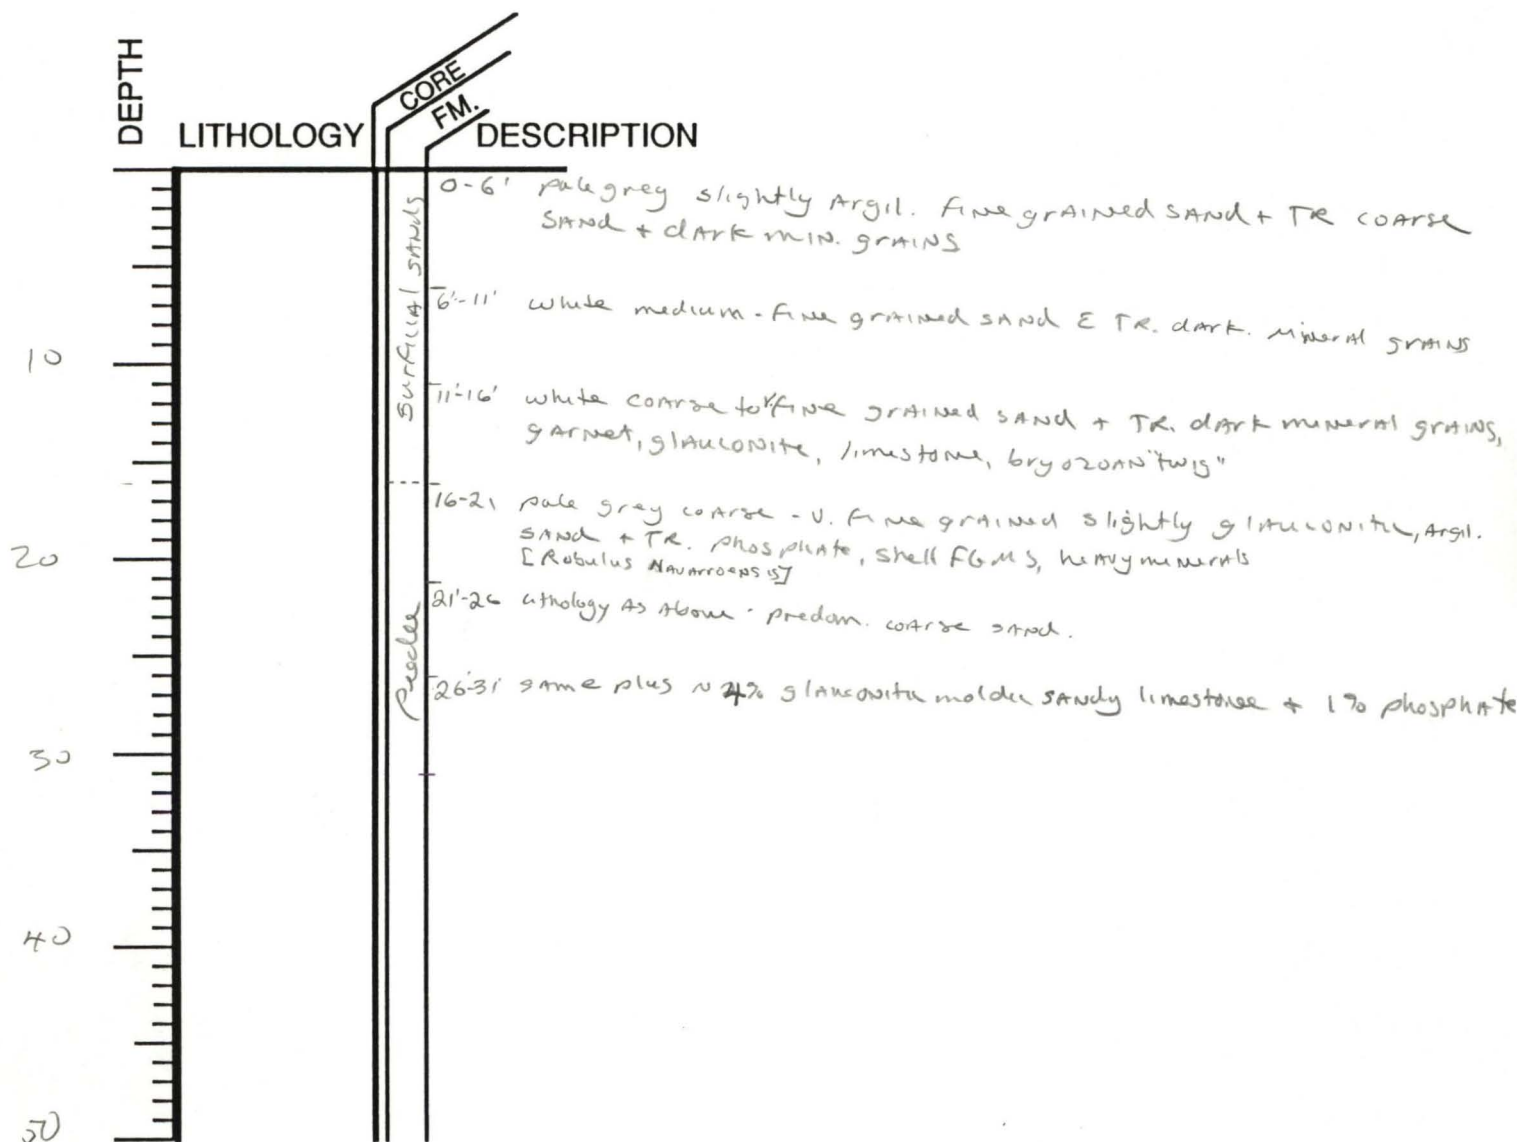 DEPTH
LITHOLOGY
CORE
FM.
DESCRIPTION
0-6' pale grey slightly Argil. fine grained SAND + TR coarse
SAND + dark min. grains
6'-11' white medium - fine grained sand & TR. dark. mineral grains
11'-16' white coarse to v. fine grained sand + TR. dark mineral grains,
garnet, glauconite, limestone, bryozoan "twig"
16-21 pale grey coarse - v. fine grained slightly glauconitic, Argil.
sand + TR. phosphate, shell FGMS, heavy minerals
[Robulus Navarroensis]
21'-26 lithology As Above - predom. coarse sand.
26'-31' same plus ~ 4% glauconitic moldic sandy limestone + 1% phosphate
Surficial sands
Peedee
10
20
30
40
50